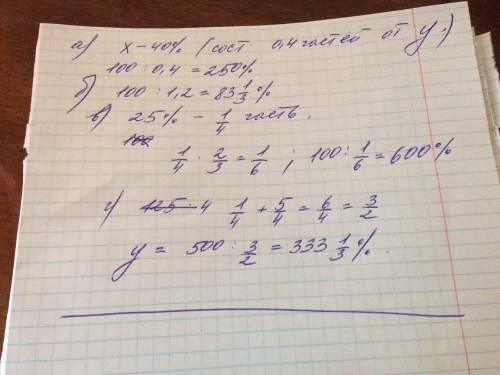 а) x – 40% (сост. 0,4 частей от y.)
100 : 0,4 = 250%
б) 100 : 1,2 = 83 1/3 %
в) 25% – 1/4 часть.
100
1/4 · 2/3 = 1/6 ; 100 : 1/6 = 600%
г) 125 : 4 1/4 + 5/4 = 6/4 = 3/2
y = 500 : 3/2 = 333 1/3 %.